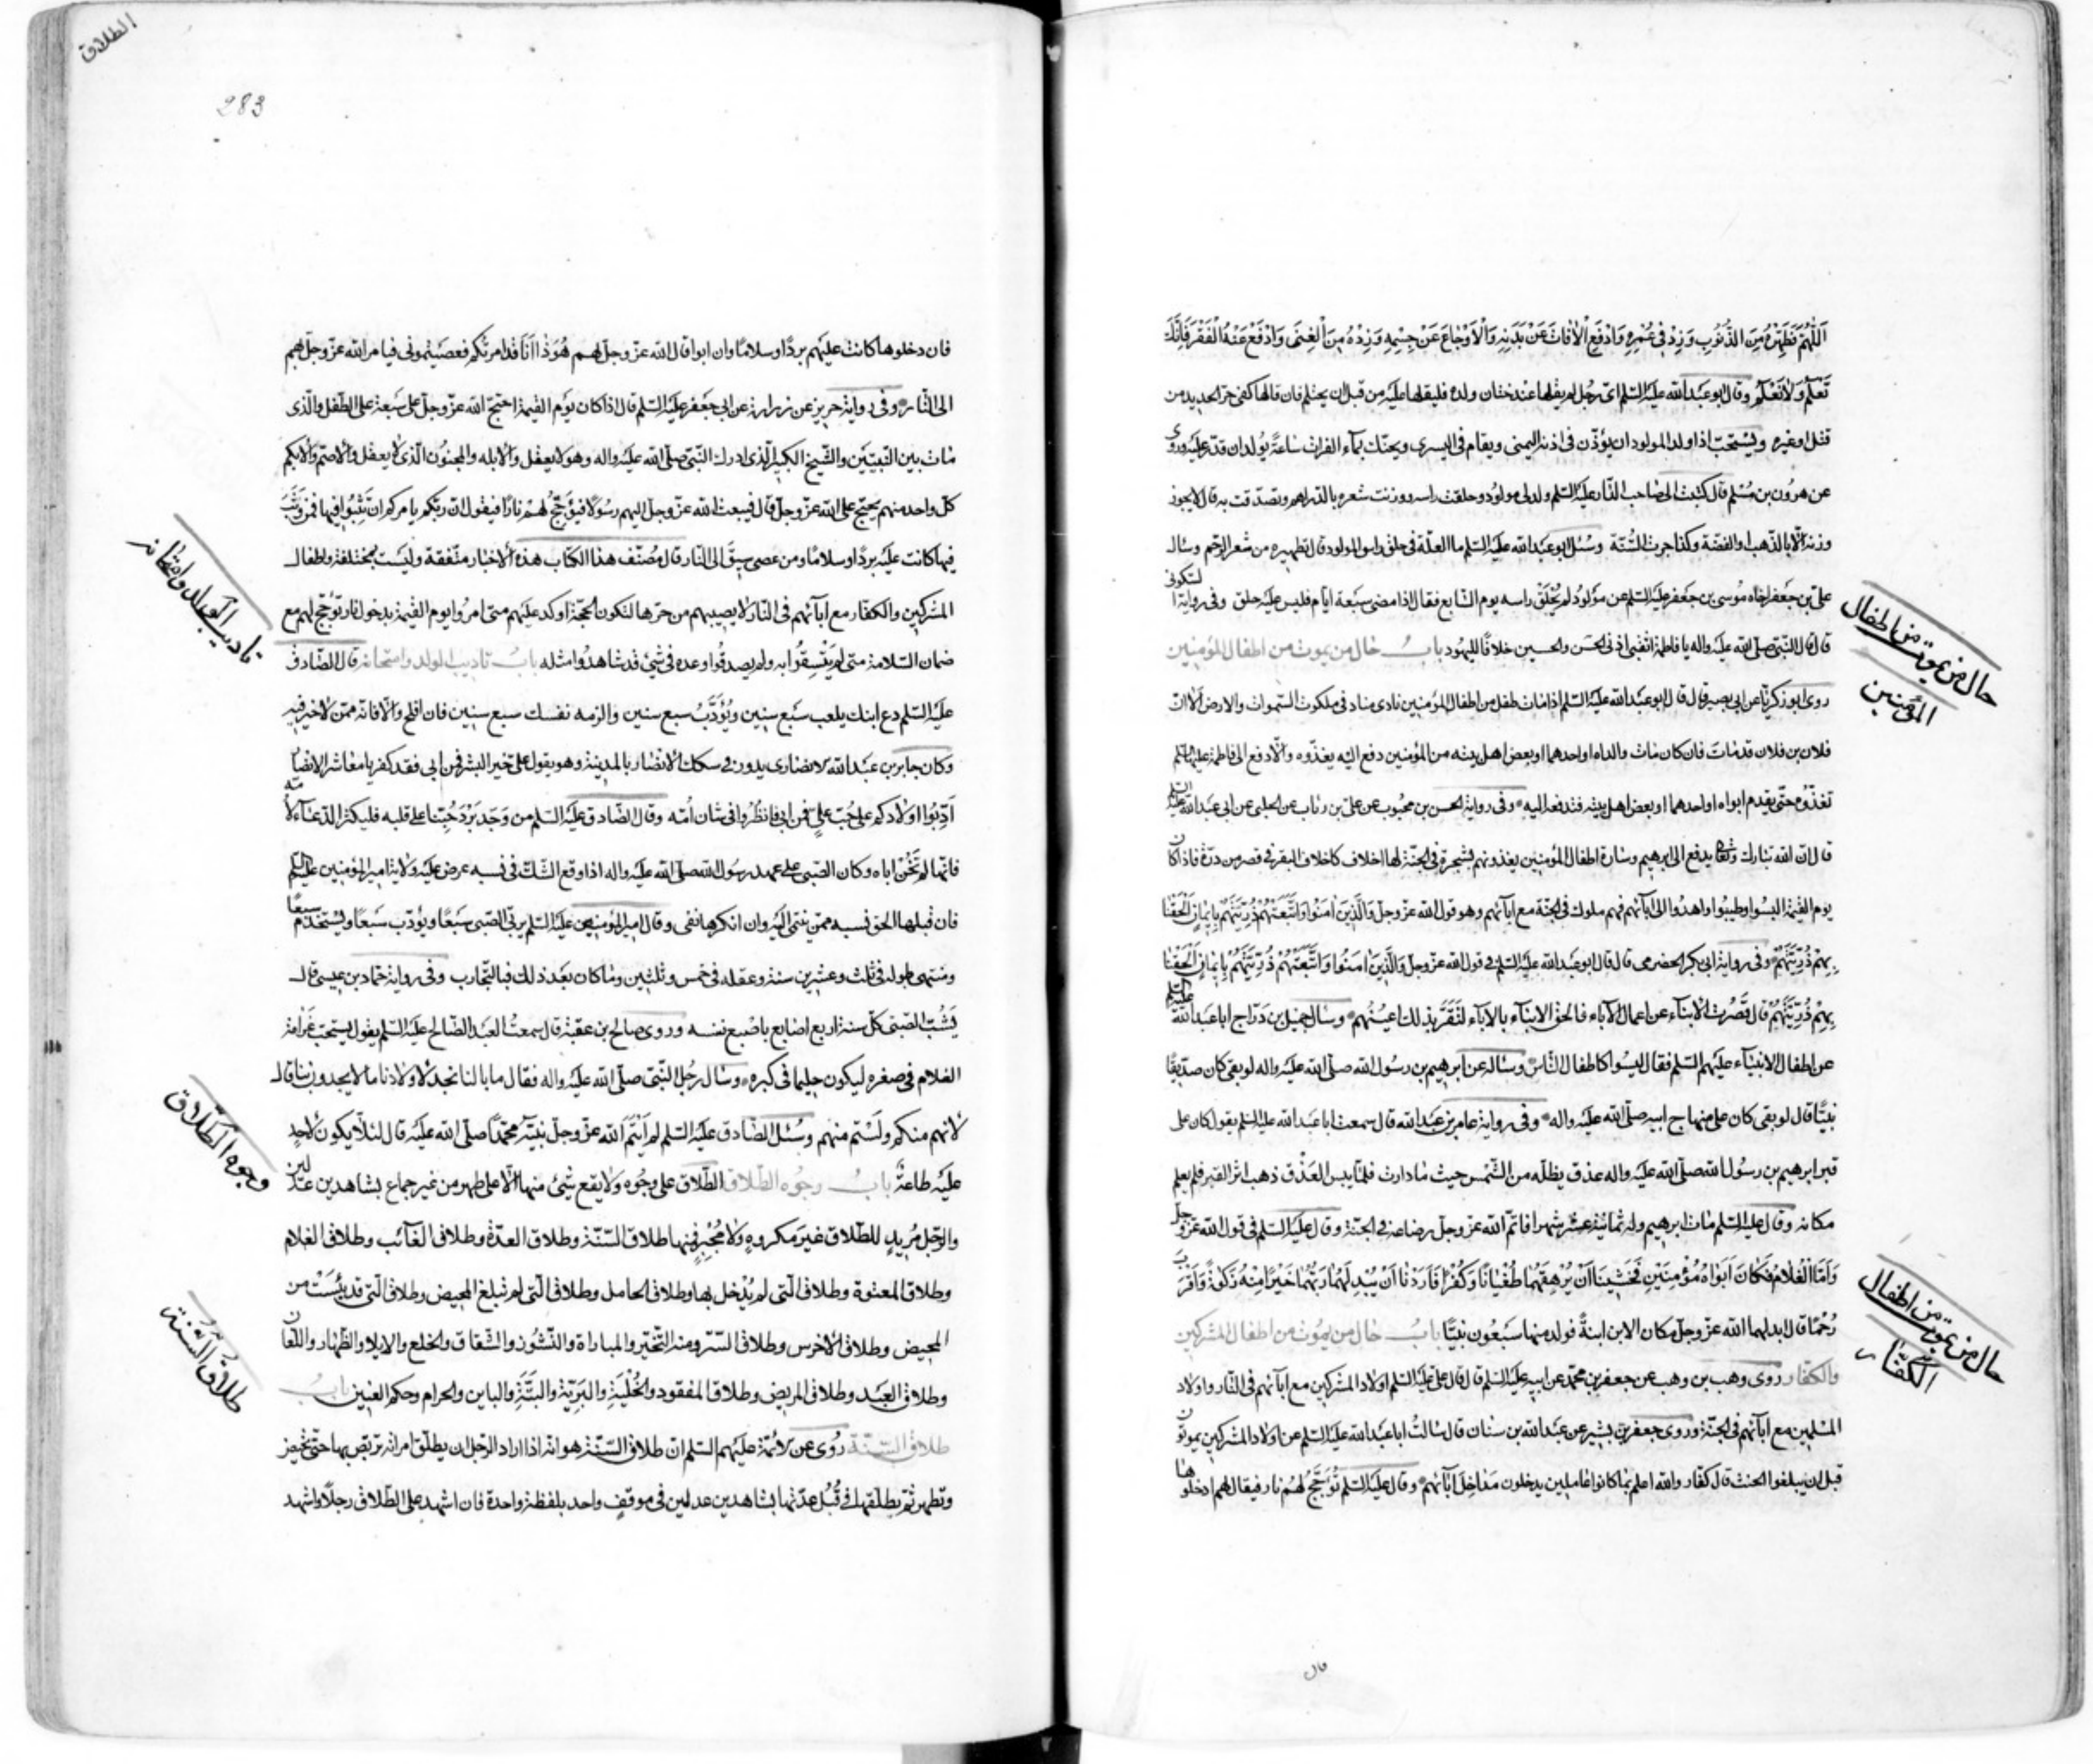 اَللّٰهُمَّ فَطَهِّرْهُ مِنَ الذُّنُوبِ وَزِدْ فِي عُمْرِهِ وَادْفَعِ الْاٰفَاتَ عَنْ بَدَنِهِ وَالْاَوْجَاعَ عَنْ جِسْمِهِ وَزِدْهُ مِنَ الْغِنَى وَادْفَعْ عَنْهُ الْفَقْرَ فَاِنَّكَ
تَعْلَمُ وَلَا نَعْلَمُ وقال ابو عبد الله عليه السلم اىّ رجل لم يقلها عند ختان ولده فليقلها عليه من قبل ان يحتلم فان قالها كفى حرّ الحديد من
قتل او غيره ويستحبّ اذا ولد المولود ان يؤذّن فى اذنه اليمنى ويقام فى اليسرى ويحنّك بماء الفرات ساعة يولد ان قدر عليه وروى
عن هرون بن مسلم قال كتبت الى صاحب الدّار عليه السلم ولد لى مولود وحلقت راسه ووزنت شعره بالدّراهم وتصدّقت به قال لا يجوز
وزنه الّا بالذّهب والفضّة وكذا جرت السُّنّة وسُئل ابو عبد الله عليه السلم ما العلّة فى حلق راس المولود قال تطهيره من شعر الرّحم وسال
علىّ بن جعفر اخاه موسى بن جعفر عليه السلم عن مولود لم يُحلَق راسه يوم السّابع فقال اذا مضى سبعة ايّام فليس عليه حلق وفى رواية السّكونى
قال قال النّبىّ صلّى الله عليه واله يا فاطمة اثقبى اذنى الحسن والحسين خلافًا لليهود باب حال من يموت من اطفال المؤمنين
روى ابو زكريّا عن ابى بصير قال قال ابو عبد الله عليه السلم اذا مات طفل من اطفال المؤمنين نادى مناد فى ملكوت السّموات والارض الا انّ
فلان بن فلان قد مات فان كان مات والداه او احدهما او بعض اهل بيته من المؤمنين دفع اليه يغذّوه والّا دفع الى فاطمة عليها السلم
تغذّوه حتّى يقدم ابواه او احدهما او بعض اهل بيته فتدفعه اليه وفى رواية الحسن بن محبوب عن علىّ بن رئاب عن الحلبى عن ابى عبد الله عليه السلم
قال انّ الله تبارك وتعالى يدفع الى ابرهيم وسارة اطفال المؤمنين يغذونهم بشجرة فى الجنّة لها اخلاف كاخلاف البقر فى قصر من درّة فاذا كان
يوم القيمة البسوا وطيبوا واهدوا الى ابآئهم فهم ملوك فى الجنّة مع ابآئهم وهو قول الله عزّ وجلّ وَالَّذِينَ اٰمَنُوا وَاتَّبَعَتْهُمْ ذُرِّيَّتُهُمْ بِاِيمَانٍ اَلْحَقْنَا
بِهِمْ ذُرِّيَّتَهُمْ وفى رواية ابى بكر الحضرمى قال قال ابو عبد الله عليه السلم فى قول الله عزّ وجلّ وَالَّذِينَ اٰمَنُوا وَاتَّبَعَتْهُمْ ذُرِّيَّتُهُمْ بِاِيمَانٍ اَلْحَقْنَا
بِهِمْ ذُرِّيَّتَهُمْ قال قَصُرت الابناء عن اعمال الاباء فالحق الابنآء بالاباء لتقرّ بذلك اعينهم وسال جميل بن درّاج ابا عبد الله عليه السلم
عن اطفال الانبيآء عليهم السلم فقال ليسوا كاطفال النّاس وساله عن ابرهيم بن رسول الله صلى الله عليه واله لو بقى كان صدّيقًا
نبيًّا قال لو بقى كان على منهاج ابيه صلّى الله عليه واله وفى رواية عامر بن عبد الله قال سمعت ابا عبد الله عليه السلم يقول كان على
قبر ابرهيم بن رسول الله صلّى الله عليه واله عذق يظلّه من الشّمس حيث ما دارت فلمّا يبس العذق ذهب اثر القبر فلم يعلم
مكانه وقال عليه السلم مات ابرهيم وله ثمانية عشر شهرا فاتمّ الله عزّ وجلّ رضاعه فى الجنّة وقال عليه السلم فى قول الله عزّ وجلّ
وَاَمَّا الْغُلَامُ فَكَانَ اَبَوَاهُ مُؤْمِنَيْنِ فَخَشِينَا اَنْ يُرْهِقَهُمَا طُغْيَانًا وَكُفْرًا فَاَرَدْنَا اَنْ يُبْدِلَهُمَا رَبُّهُمَا خَيْرًا مِنْهُ زَكٰوةً وَاَقْرَبَ
رُحْمًا قال ابدلهما الله عزّ وجلّ مكان الابن ابنةً فولد منها سبعون نبيًّا باب حال من يموت من اطفال المشركين
والكفّار روى وهب بن وهب عن جعفر بن محمّد عن ابيه عليه السلم قال قال علىّ عليه السلم اولاد المشركين مع ابآئهم فى النّار واولاد
المسلمين مع ابآئهم فى الجنّة وروى جعفر بن بشير عن عبد الله بن سنان قال سالت ابا عبد الله عليه السلم عن اولاد المشركين يموتون
قبل ان يبلغوا الحنث قال كفّار والله اعلم بما كانوا عاملين يدخلون مداخل ابآئهم وقال عليه السلم تؤجّج لهم نار فيقال لهم ادخلوها
حال من يموت من اطفال
المؤمنين
حال من يموت من اطفال
الكفّار
قال
الطلاق
283
فان دخلوها كانت عليهم بردًا وسلامًا وان ابوا قال الله عزّ وجلّ لهم هُوَ ذا اَنَا قد امرتكم فعصيتمونى فيامر الله عزّ وجلّ بهم
الى النّار وفى رواية حريز عن زرارة عن ابى جعفر عليه السلم قال اذا كان يوم القيمة احتجّ الله عزّ وجلّ على سبعة على الطّفل والّذى
مات بين النّبيّين والشّيخ الكبير الّذى ادرك النّبىّ صلّى الله عليه واله وهو لا يعقل والابله والمجنون الّذى لا يعقل والاصمّ والابكم
كلّ واحد منهم يحتجّ على الله عزّ وجلّ قال فيبعث الله عزّ وجلّ اليهم رسولًا فيؤجّج لهم نارًا فيقول انّ ربّكم يامركم ان تثبوا فيها فمن وثب
فيها كانت عليه بردًا وسلامًا ومن عصى سيق الى النّار قال مصنّف هذا الكتاب هذه الاخبار متّفقة وليست بمختلفة واطفال
المشركين والكفّار مع ابآئهم فى النّار لا يصيبهم من حرّها لتكون الحجّة اوكد عليهم متى امروا يوم القيمة بدخول نار تؤجّج لهم مع
ضمان السّلامة متى لم يثقوا به ولم يصدقوا وعده فى شىء قد شاهدوا مثله باب تاديب الولد وامتحانه قال الصّادق
عليه السلم دع ابنك يلعب سبع سنين ويُؤَدَّب سبع سنين والزمه نفسك سبع سنين فان افلح والّا فانّه ممّن لا خير فيه
وكان جابر بن عبد الله الانصارى يدور فى سكك الانصار بالمدينة وهو يقول علىّ خير البشر فمن ابى فقد كفر يا معاشر الانصار
اَدِّبُوا اولادكم على حُبّ علىّ فمن ابى فانظروا فى شان امّه وقال الصّادق عليه السلم من وجد برد حُبّنا على قلبه فليكثر الدّعاء لامّه
فانّها لم تخن اباه وكان الصّبىّ على عهد رسول الله صلّى الله عليه واله اذا وقع الشّكّ فى نسبه عرض عليه ولاية امير المؤمنين عليه السلم
فان قبلها الحق نسبه بمن ينتمى اليه وان انكرها نفى وقال امير المؤمنين عليه السلم يربّى الصّبى سبعًا ويؤدّب سبعًا ويستخدم سبعًا
ومنتهى طوله فى ثلث وعشرين سنة وعقله فى خمس وثلثين وما كان بعد ذلك فبالتّجارب وفى رواية حمّاد بن عيسى قال
يشبّ الصّبى كلّ سنة اربع اصابع باصبع نفسه وروى صالح بن عقبة قال سمعت العبد الصّالح عليه السلم يقول يستحبّ غرامة
الغلام فى صغره ليكون حليما فى كبره وسال رجل النّبى صلّى الله عليه واله فقال ما بالنا نجد لاولادنا ما لا يجدون بنا قال
لانّهم منكم ولستم منهم وسُئل الصّادق عليه السلم لم ايتم الله عزّ وجلّ نبيّه محمّدًا صلّى الله عليه قال لئلّا يكون لاحد
عليه طاعة باب وجوه الطلاق الطّلاق على وجوه ولا يقع شىء منها الّا على طهر من غير جماع بشاهدين عدلين
والرّجل مُريد للطّلاق غير مكروه ولا مُجبر فمنها طلاق السّنّة وطلاق العدّة وطلاق الغائب وطلاق الغلام
وطلاق المعتوه وطلاق الّتى لم يُدخل بها وطلاق الحامل وطلاق الّتى لم تبلغ المحيض وطلاق الّتى قد يئست من
المحيض وطلاق الاخرس وطلاق السّرّ ومنه التّخيّر والمباراة والنّشوز والشّقاق والخلع والايلا والظّهار واللّعان
وطلاق العبد وطلاق المريض وطلاق المفقود والخليّة والبريّة والبتّة والباين والحرام وحكم العنين باب
طلاق السّنّة رُوى عن الائمّة عليهم السلم انّ طلاق السّنّة هو انّه اذا اراد الرّجل ان يطلّق امراته تربّص بها حتّى تحيض
وتطهر ثمّ يطلّقها فى قُبُل عدّتها بشاهدين عدلين فى موقف واحد بلفظة واحدة فان اشهد على الطّلاق رجلًا واشهد
تاديب الولد وامتحانه
وجوه الطّلاق
طلاق السُّنّة